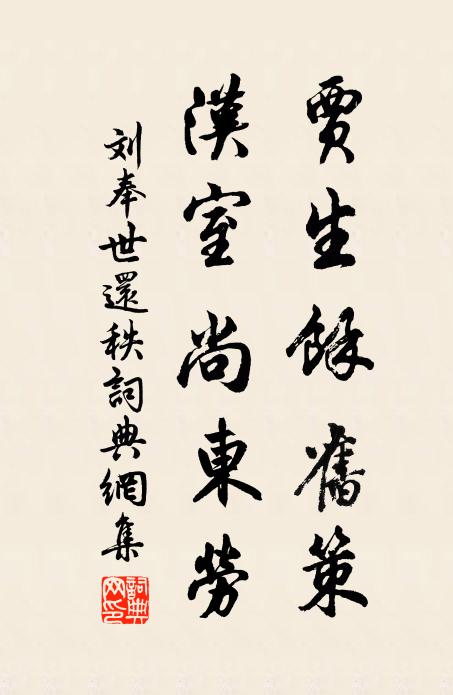 賈生餘舊策
漢室尚東勞
刘奉世還秩詞典網集
詞典网印